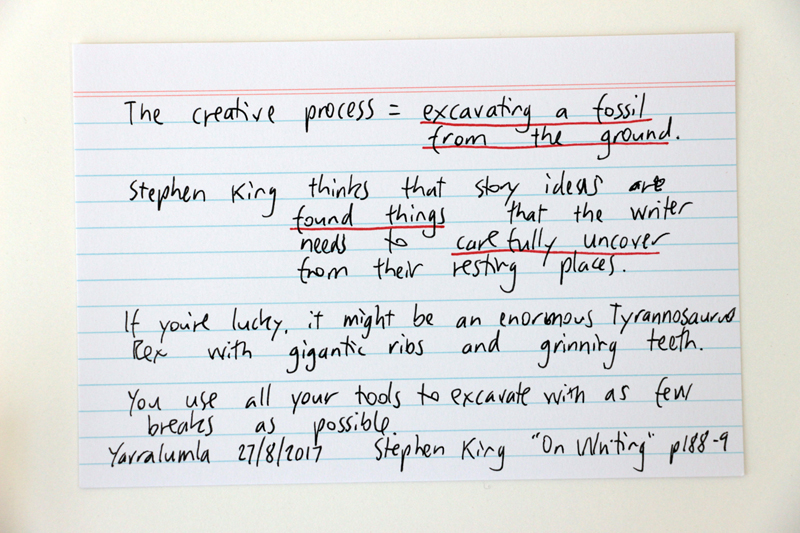 The creative process = excavating a fossil
from the ground.
Stephen King thinks that story ideas are
found things that the writer
needs to carefully uncover
from their resting places.
If you're lucky, it might be an enormous Tyrannosaurus
Rex with gigantic ribs and grinning teeth.
You use all your tools to excavate with as few
breaks as possible.
Yarralumla 27/8/2017 Stephen King "On Writing" p188-9